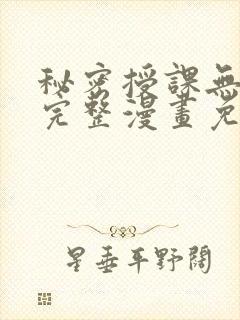 秘密授課無
完整漫畫免
星垂平野闊